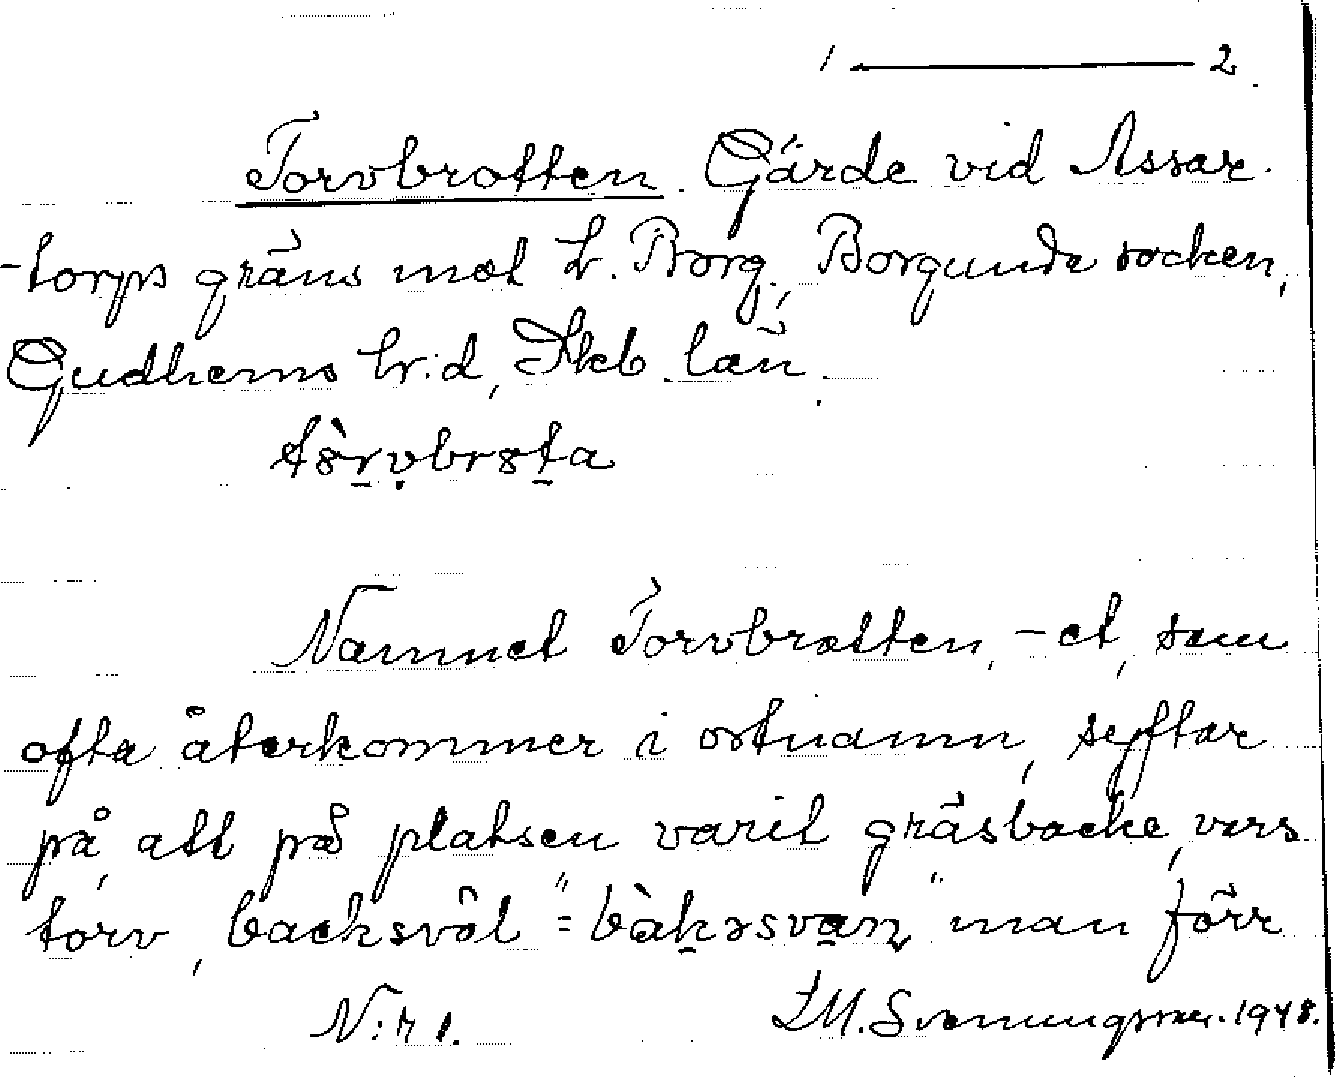 1 ——— 2
Torvbrotten. Gärde vid Assar-
-torps gräns mot L. Borg, Borgunda socken,
Gudhems hr:d, Skb. län.
Namnet Torvbrotten, -et, som
ofta återkommer i ortnamn, syftar
på, att på platsen varit gräsbacke, vars
torv, backsvål "= " man förr
N:r 1. Svenningsson. 1948.